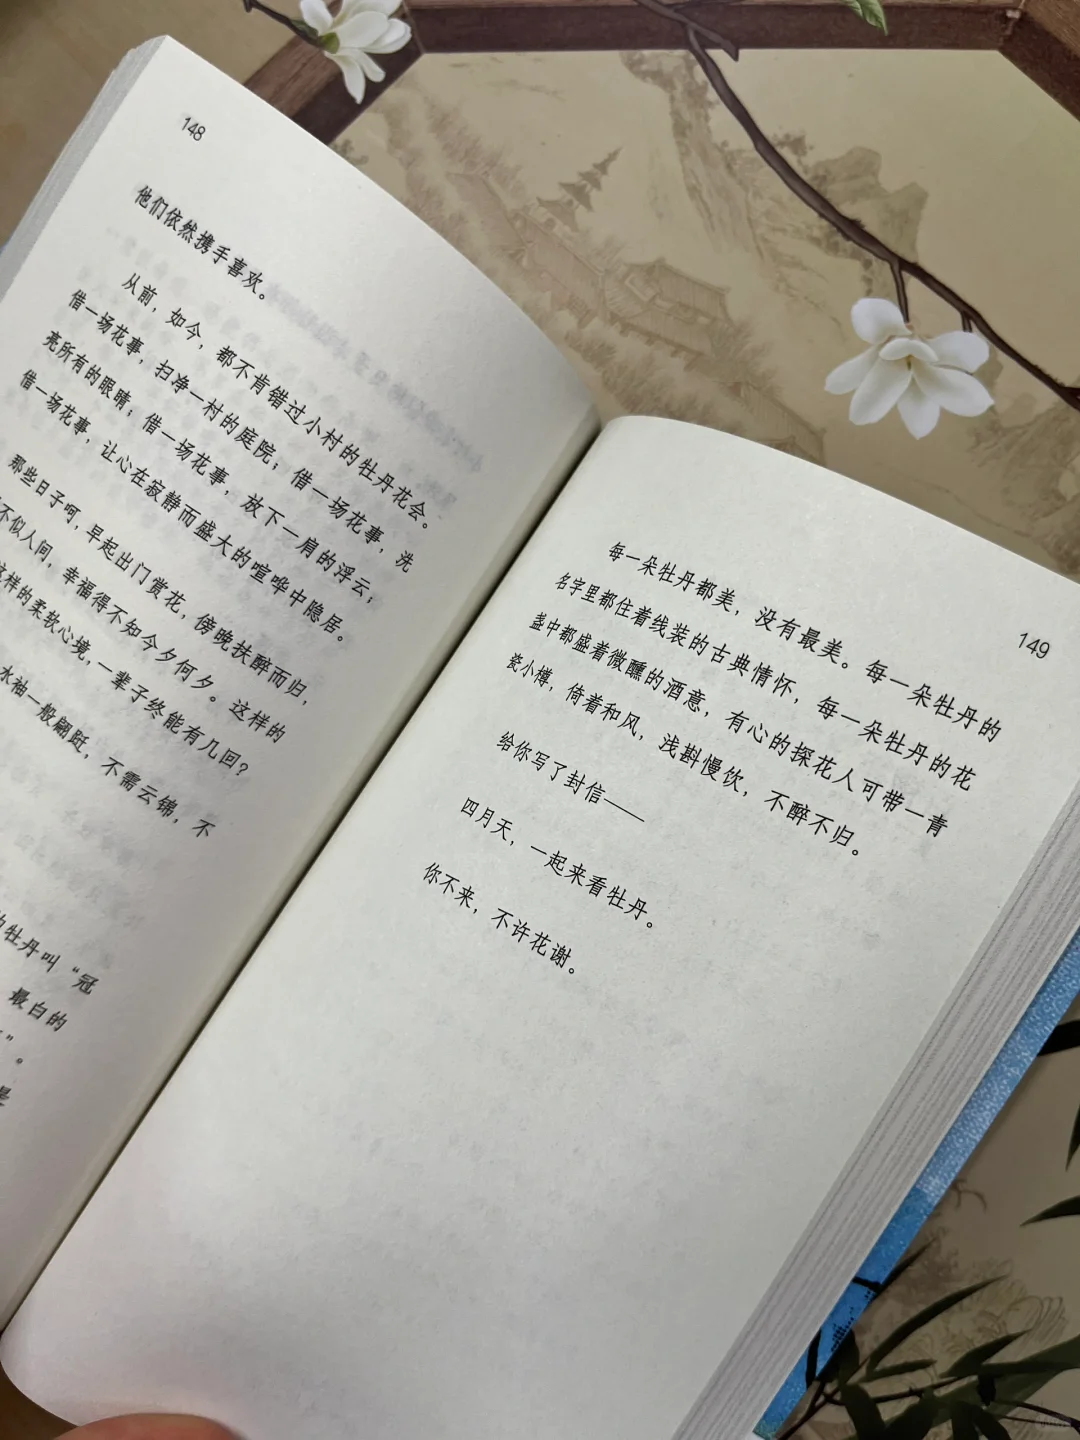 148
他们依然携手喜欢。
从前，如今，都不肯错过小村的牡丹花会。
借一场花事，扫净一村的庭院；借一场花事，洗
亮所有的眼睛；借一场花事，放下一肩的浮云；
借一场花事，让心在寂静而盛大的喧哗中隐居。
那些日子呵，早起出门赏花，傍晚扶醉而归，
不似人间，幸福得不知今夕何夕。这样的
这样的柔软心境，一辈子终能有几回？
水袖一般翩跹，不需云锦，不
的牡丹叫“冠
最白的
”。
是
149
每一朵牡丹都美，没有最美。每一朵牡丹的
名字里都住着线装的古典情怀，每一朵牡丹的花
盏中都盛着微醺的酒意，有心的探花人可带一青
瓷小樽，倚着和风，浅斟慢饮，不醉不归。
给你写了封信——
四月天，一起来看牡丹。
你不来，不许花谢。